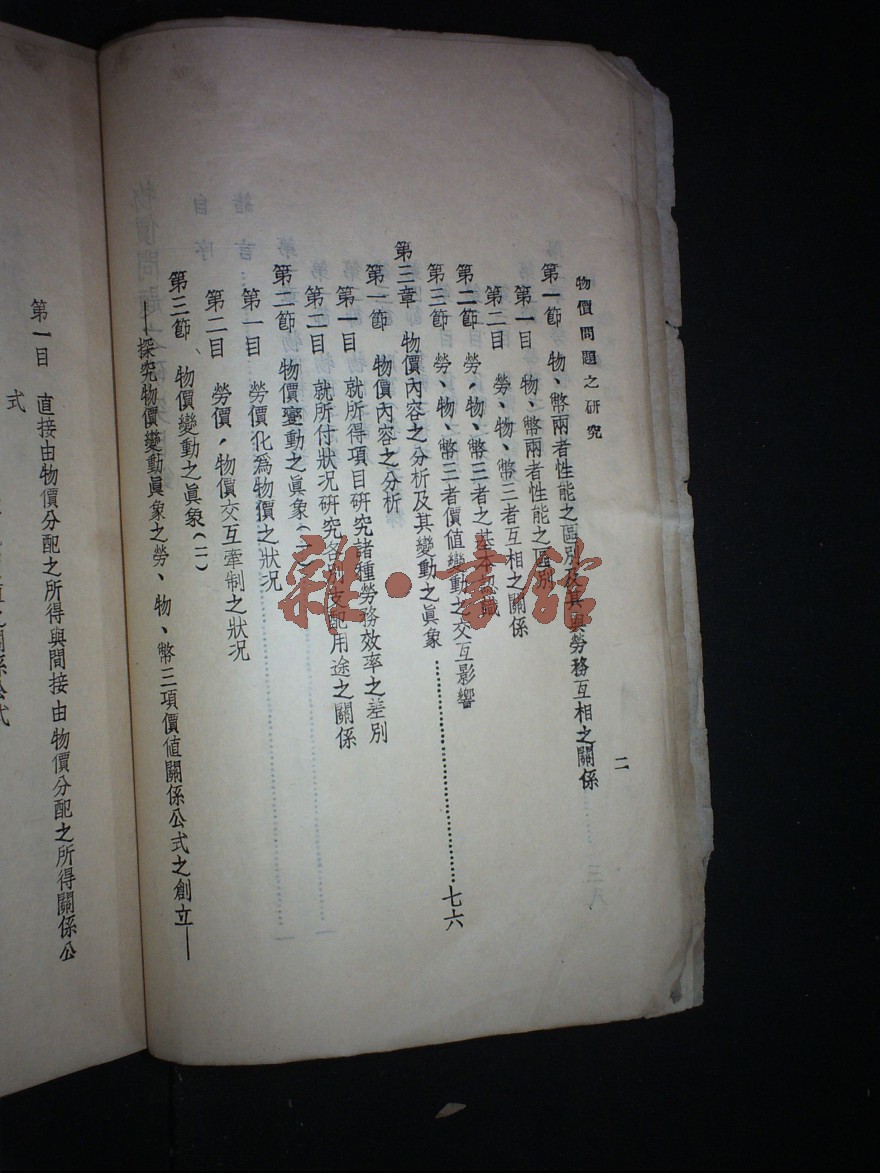 物價問題之研究
二
第一節 物、幣兩者性能之區別及其與勞務互相之關係
第一目 物、幣兩者性能之區別
第二目 勞、物、幣三者互相之關係
第二節 勞，物、幣三者之基本認識
第三節 勞、物、幣三者價值變動之交互影響
第三章 物價內容之分析及其變動之眞象……七六
第一節 物價內容之分析
第一目 就所得項目研究諸種勞務效率之差別
第二目 就所付狀況研究各別支配用途之關係
第二節 物價變動之眞象(一)
第一目 勞價化爲物價之狀況
第二目 勞價，物價交互牽制之狀況
第三節、物價變動之眞象(二)
——探究物價變動眞象之勞、物、幣三項價値關係公式之創立——
第一目 直接由物價分配之所得與間接由物價分配之所得關係公
式
雜·書館